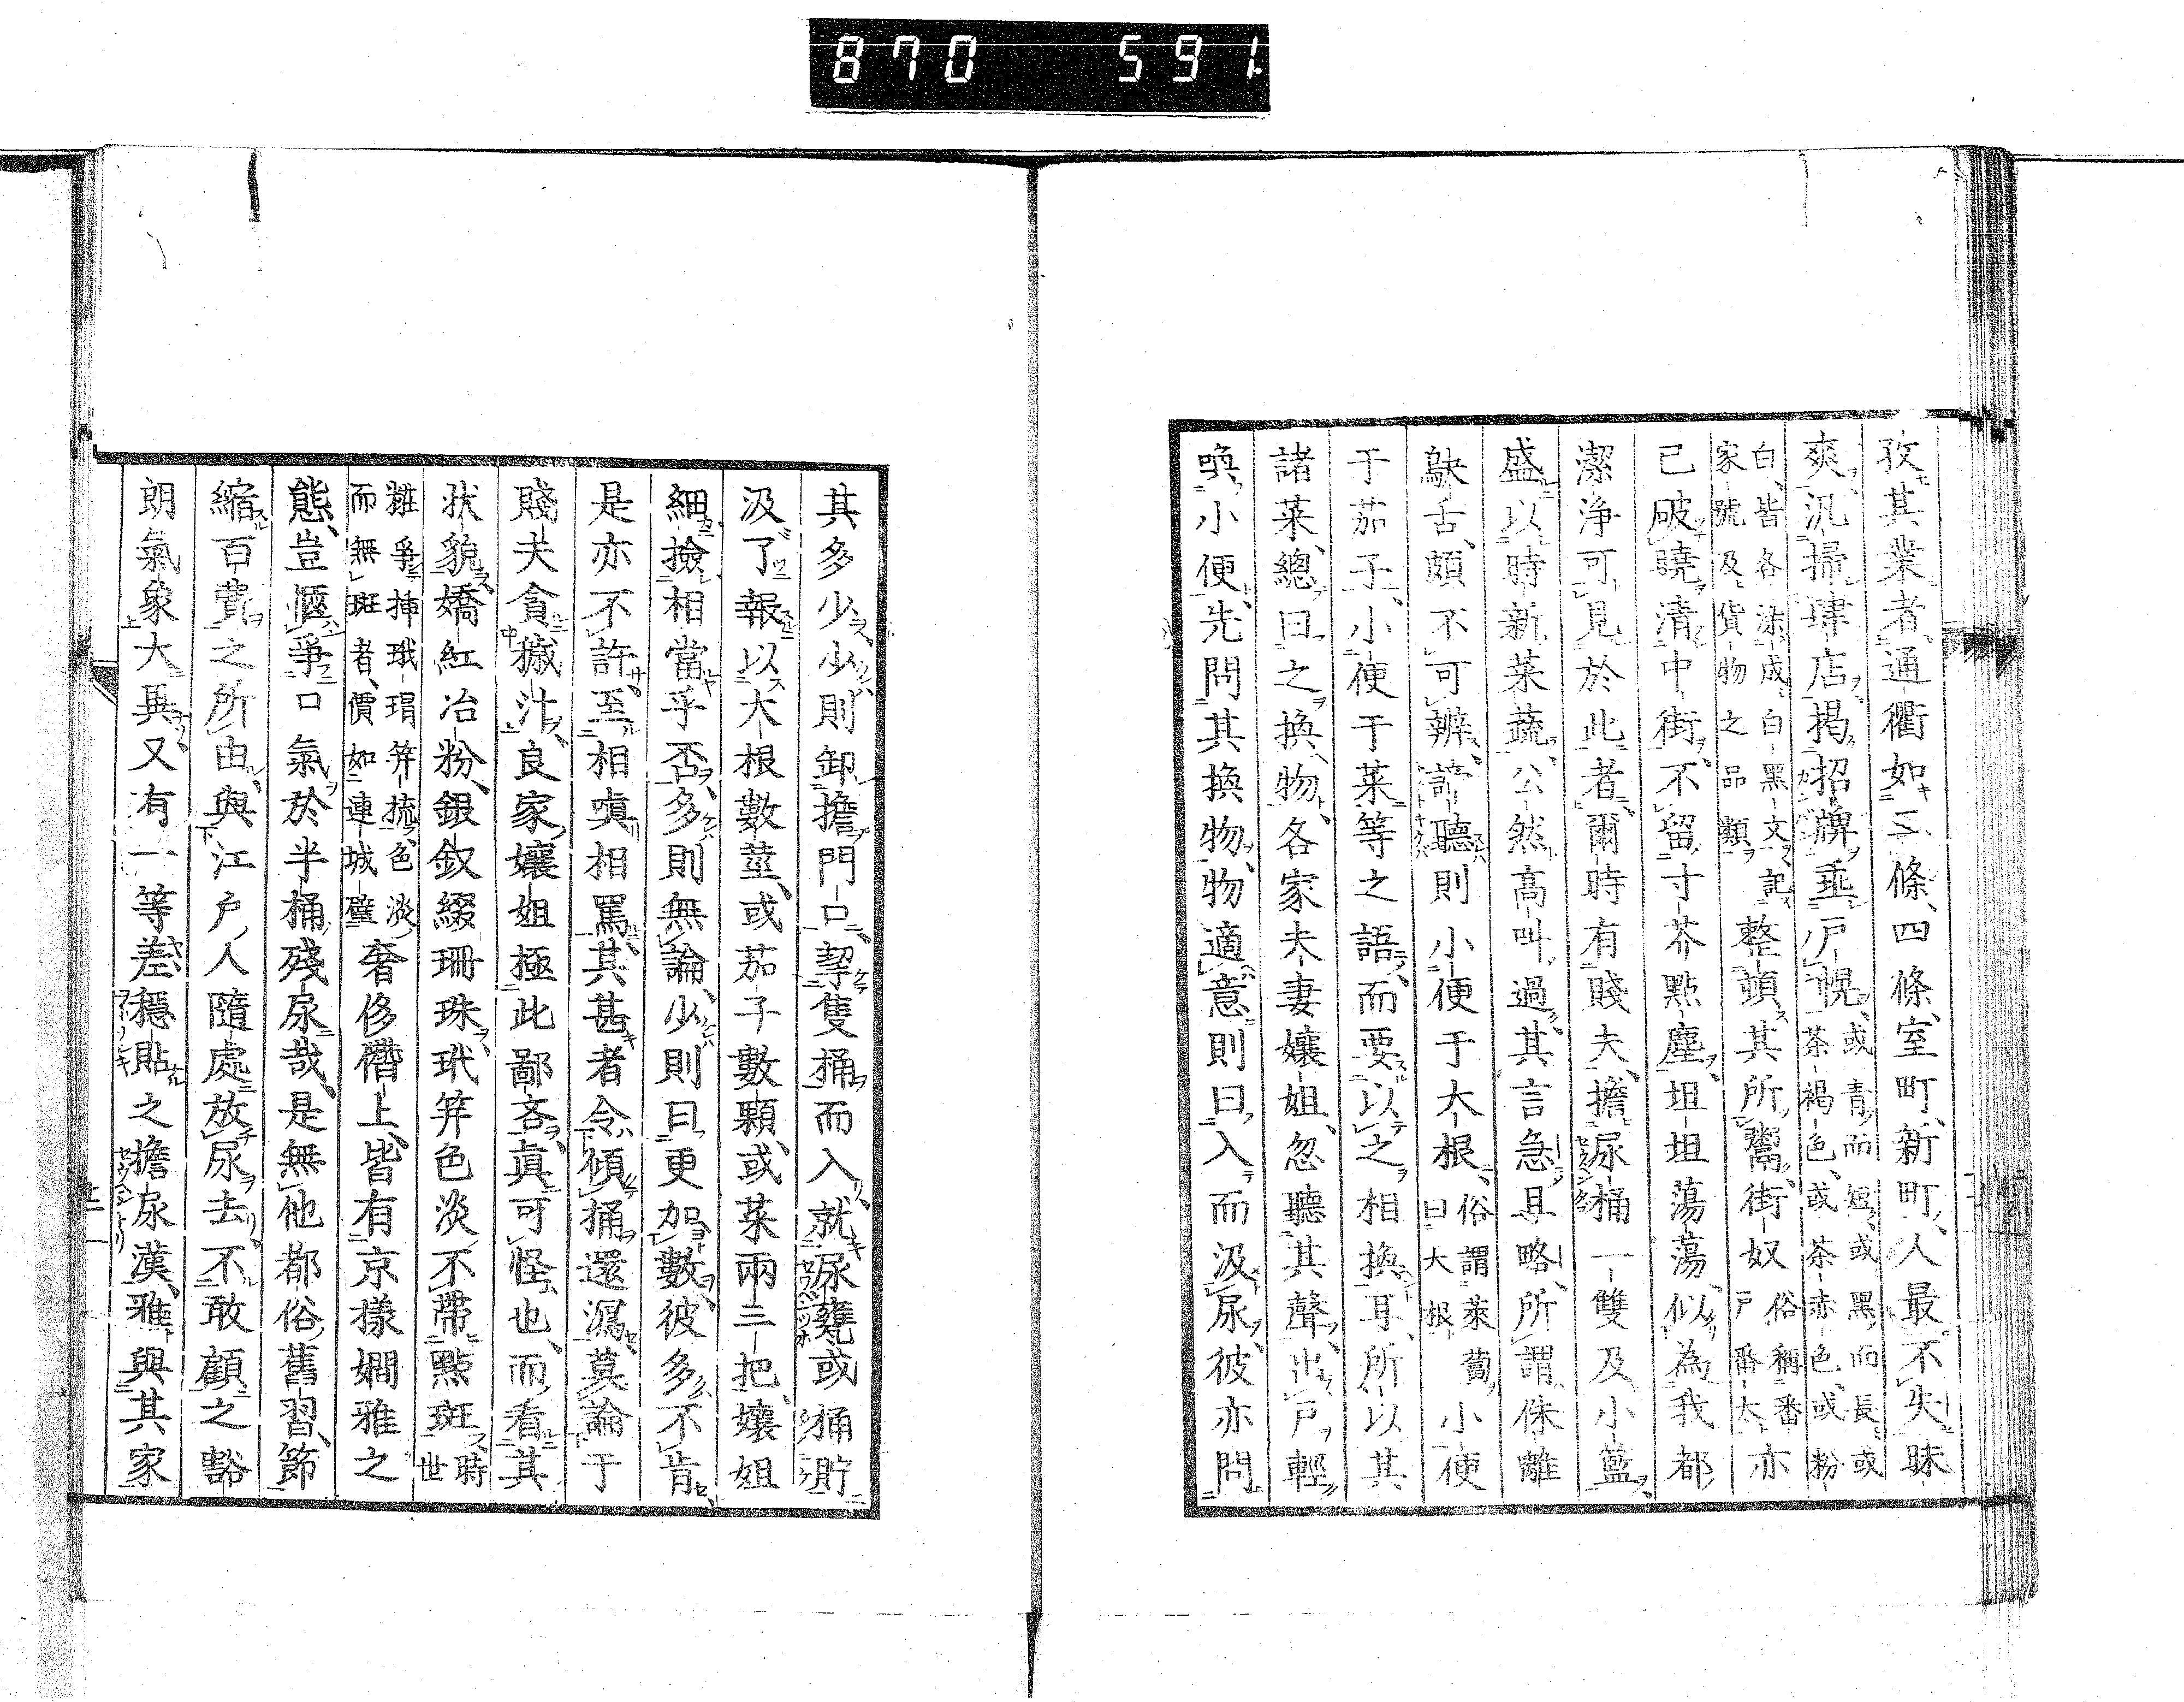 870 591
孜其業者、通衢如二條、四條、室町、新町、人最不失昧
爽、汎掃肆店、掲招牌垂戸幌、或青而短、或黑而長、或茶褐色、或茶赤色、或粉
白、皆各染成白黑文、記家號及貨物之品類整頓其所鬻、街奴俗稱番戸番太亦
已破曉清中街、不留寸芥點塵、坦坦蕩蕩、似為我都
潔浄可見於此者、爾時有賤夫、擔尿桶一雙及小籃、
盛以時新菜蔬、公然高叫過、其言急且略、所謂侏離
鴃舌、頗不可辨、諦聽則小便于大根、俗謂萊蔔曰大根小便
于茄子、小便于菜等之語、而要以之相換耳、所以其
諸菜、總曰之換物、各家夫妻孃姐、忽聽其聲、出戸輕
喚小便、先問其換物、物適意則曰、入而汲尿、彼亦問
其多少、少則卸擔門口、挈隻桶而入、就尿甕或桶貯
汲了報以大根數莖、或茄子數顆、或菜兩三把、孃姐
細撿相當乎否、多則無論、少則曰更加數、彼多不肯、
是亦不許、至相嗔相罵、其甚者令傾桶還瀉、莫論于
賤夫貪穢汁、良家孃姐極此鄙吝、真可怪也、而看其
狀貌嬌紅冶粉、銀釵綴珊珠、玳笄色淡不帶點斑、時世
粧爭插玳瑁笄梳、色淡而無斑者、價如連城璧奢侈僭上、皆有京樣嫺雅之
態、豈愜爭口氣於半桶殘尿哉、是無他都俗舊習、節
縮百費之所由、與江戸人隨處放尿去不敢顧之豁
朗氣象大異、又有一等差穩貼之擔尿漢、雅與其家